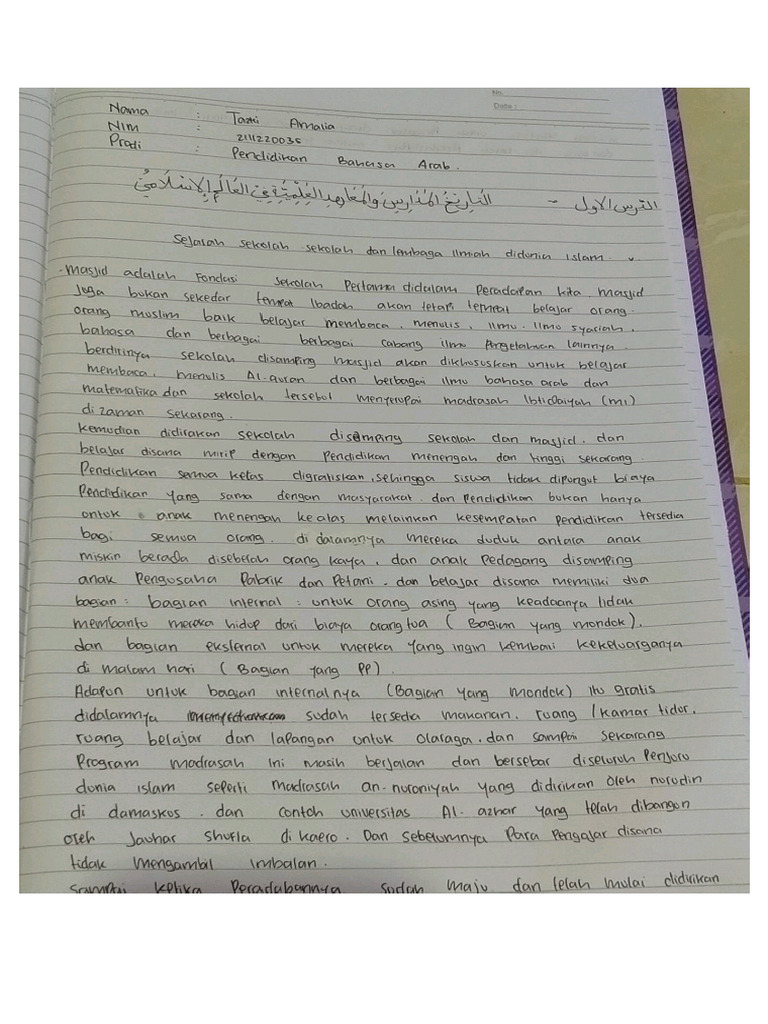 No.
Date :
Nama : Tazki Amalia
NIM : 2111220035
Prodi : Pendidikan Bahasa Arab.
الدرس الاول - التَارِيخُ المَدَارِسِ وَالمَعَاهِدِ العِلْمِيَّةِ فِي العَالَمِ الإِسْلَامِيُّ
Sejarah sekolah sekolah dan lembaga Ilmiah didunia islam.
. Masjid adalah Fondasi sekolah Pertama didalam Peradapan kita. masjid
Juga bukan sekedar tempat Ibadah akan tetapi tempat belajar orang.
orang muslim baik belajar membaca, menulis, Ilmu. Ilmu syariah,
bahasa dan berbagai berbagai cabang ilmu Pengetahuan lainnya.
berdirinya sekolah disamping masjid akan dikhususkan untuk belajar
membaca, menulis Al-quran dan berbagai ilmu bahasa arab dan
matematika dan sekolah tersebut menyerupai madrasah Ibtidaiyah (mi)
di zaman sekarang.
kemudian didirakan sekolah disamping sekolah dan masjid. dan
belajar disana mirip dengan Pendidikan menengah dan tinggi sekarang
Pendidikan semua kelas digratiskan, sehingga siswa tidak dipungut biaya
Pendidikan yang sama dengan masyarakat. dan Pendidikan bukan hanya
untuk anak menengah keatas melainkan kesempatan pendidikan tersedia
bagi semua orang. di dalamnya mereka duduk antara anak
miskin berada disebelah orang kaya, dan anak Pedagang disamping
anak Pengusaha Pabrik dan Petani. dan belajar disana memiliki dua
bagian : bagian internal : untuk orang asing yang keadaanya tidak
membantu mereka hidup dari biaya orang tua ( Bagian yang mondok).
dan bagian eksternal untuk mereka yang ingin kembali kekeluarganya
di malam hari ( Bagian yang PP).
Adapun untuk bagian internalnya (Bagian yang mondok) Itu gratis
didalamnya sudah tersedia makanan, ruang / kamar tidur,
ruang belajar dan lapangan untuk olaraga, dan sampai sekarang
Program madrasah ini masih berjalan dan bersebar diseluruh Penjuru
dunia islam seperti madrasah an-nuroniyah yang didirikan oleh nurudin
di damaskus. dan contoh universitas Al-azhar yang telah dibangun
oleh Jauhar Shufla di kaero. Dan sebelumnya Para Pengajar disana
tidak mengambil imbalan.
sampai ketika Peradabannya sudah maju dan telah mulai didirikan